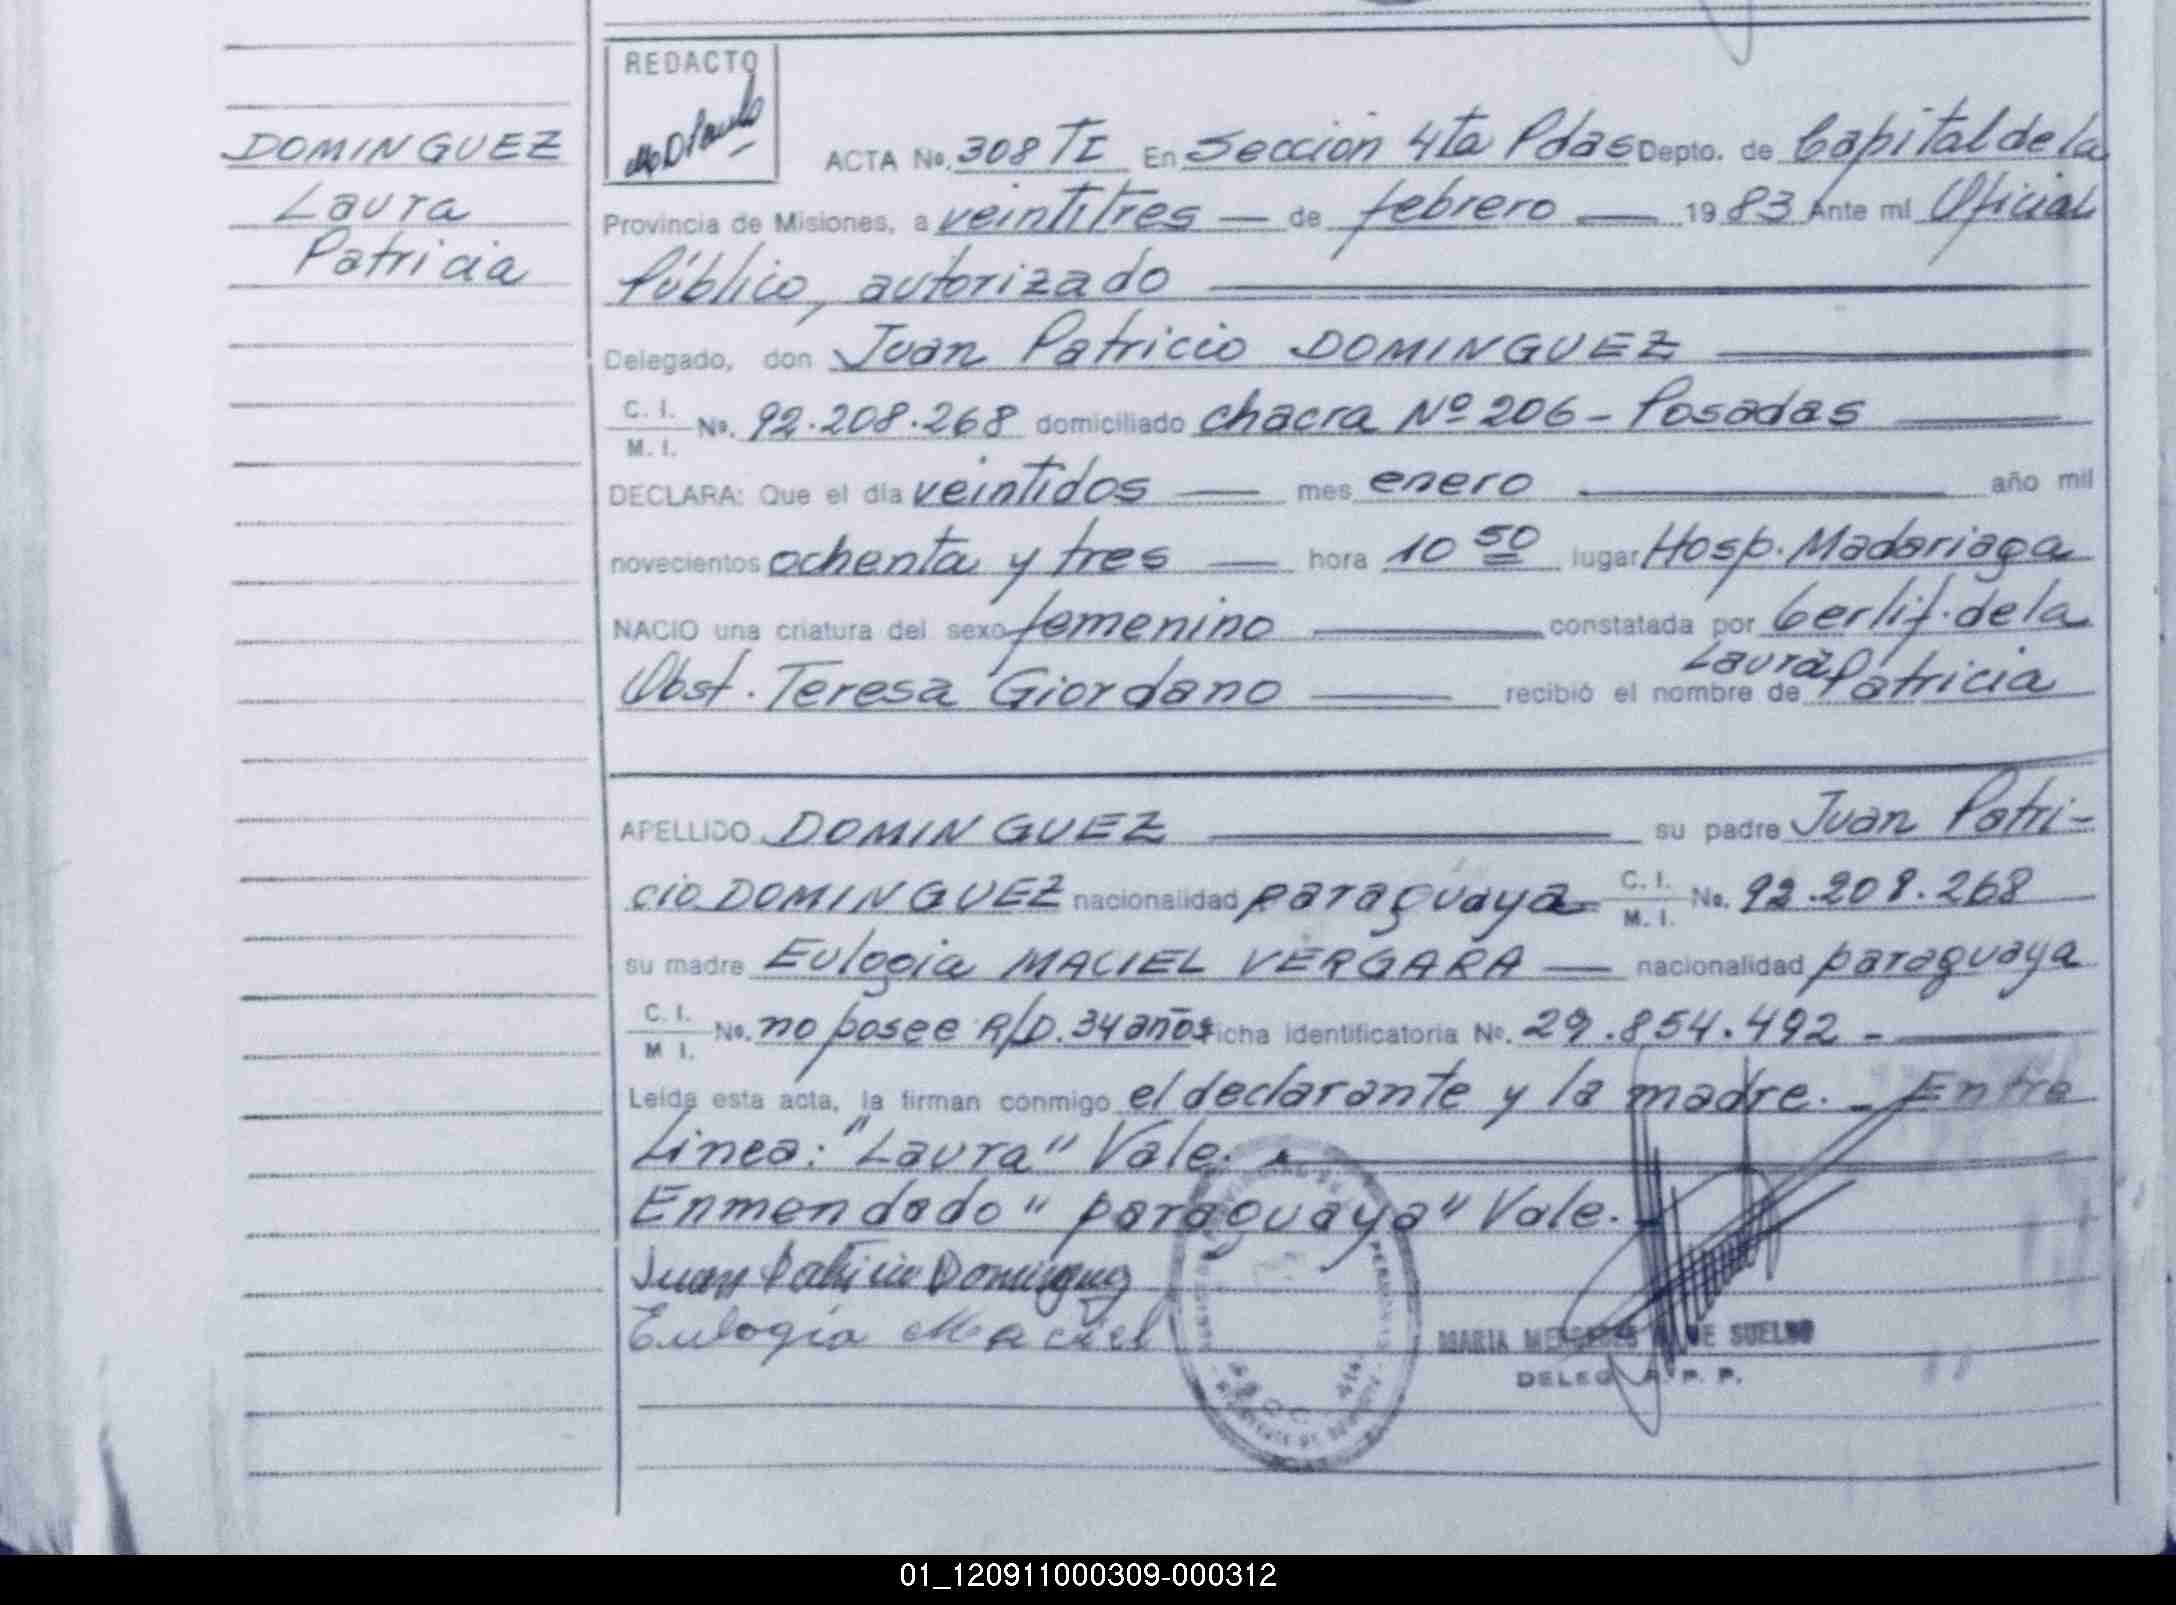 REDACTO
DOMINGUEZ
Laura
Patricia
ACTA No. 308 TI En Sección 4ta Pdas Depto. de Capital de la
Provincia de Misiones, a veintitres — de febrero — 1983 Ante mí Oficial
Público, autorizado —
Delegado, don Juan Patricio DOMINGUEZ —
C. I.
M. I. No. 92.208.268 domiciliado chacra Nº 206 - Posadas —
DECLARA: Que el día veintidos — mes enero — año mil
novecientos ochenta y tres — hora 10 50 lugar Hosp. Madariaga
NACIO una criatura del sexo femenino — constatada por Certif. de la
Laura
Obst. Teresa Giordano — recibió el nombre de Patricia
APELLIDO DOMINGUEZ — su padre Juan Patri-
cio DOMINGUEZ nacionalidad paraguaya - C. I.
M. I. No. 92.208.268
su madre Eulogia MACIEL VERGARA — nacionalidad paraguaya
C. I.
M I. No. no posee R/D. 34 años ficha identificatoria No. 29.854.492 -
Leída esta acta, la firman conmigo el declarante y la madre. - Entre
Linea: "Laura" Vale. -
Enmendado "paraguaya" Vale. -
Juan Patricio Dominguez
Eulogia Maciel
MARIA DE SUELDO
DELEG R. P. P.
01_120911000309-000312